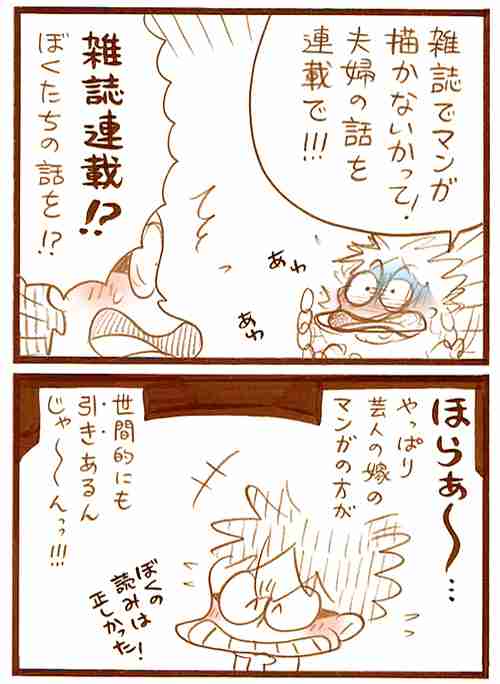 雑誌でマンガ
描かないかって!
夫婦の話を
連載で!!!
雑誌連載!?
ぼくたちの話を!?
あわ
あわ
ほらぁ〜…
やっぱり
芸人の嫁の
マンガの方が
世間的にも
引きあるん
じゃ〜〜んっっ!!!
ぼくの
読みは
正しかった!